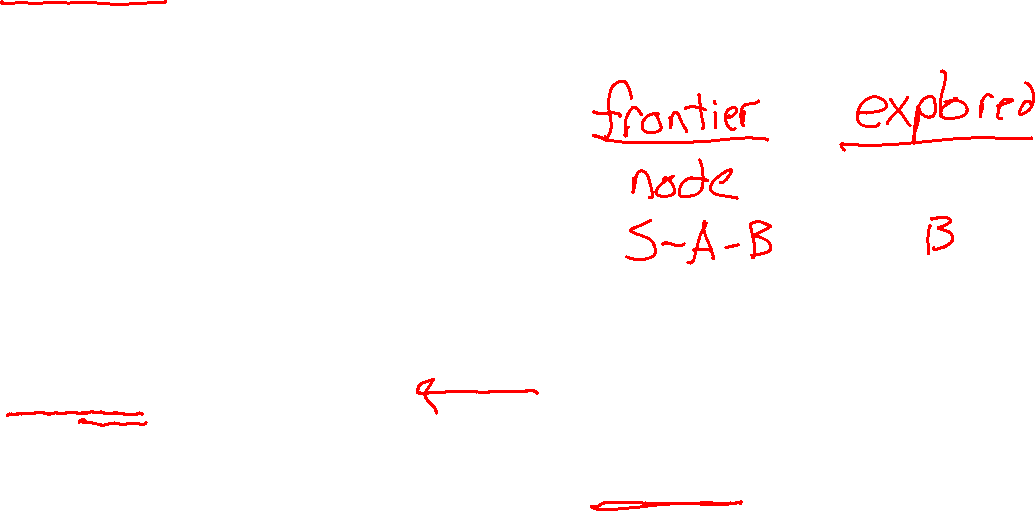 frontier explored
node
S-A-B B